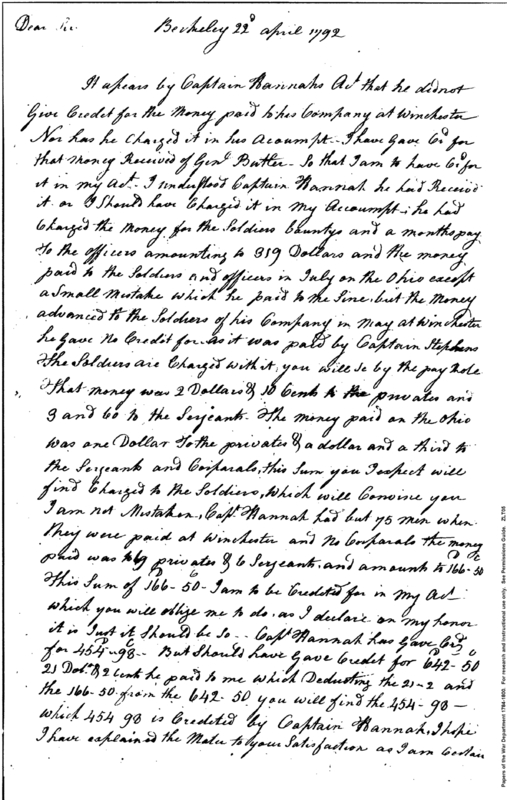 Dear Sir Berkeley 22d april 1792
It apears by Captain Hannahs Act that he did not
Give Credit for the Money paid to his Company at Winchester
Nor has he Charged it in his Acoumpt - I have Gave Cr for
that money Received of Genl Butler - So that I am to have Cr for
it in my Act - I understood Captain Hannah he had Received
it or I Should have Charged it in My Accoumpt; he had
Charged the Money for the Soldiers Bountys and a months pay
To the officers amounting to 319 Dollars and the money
paid to the Soldiers and officers in July on the Ohio except
a Small Mistake which he paid to me Sine, but the Money
advanced to the Soldiers of his Company in may at Winchester
he Gave No Credit for as it was paid by Captain Stephens
The Soldiers are Charged with it, you will Se by the pay Role
That money was 2 Dollars & 10 Cents to the privates and
3 and 60 to the Serjeants. The money paid on the Ohio
was one Dollar To the privates & a dollar and a third to
the Serjeants and Corporals, this Sum you I expect will
find Charged to the Soldiers, which will Convince you
I am not Mistaken, Capt Hannah had but 75 men when
they were paid at Winchester and No Corporals the money
paid was to 69 privates & 6 Serjeants. and amounts to 166-50
This Sum of 166-50 - I am to be Credeted for in my Act
which you will oblige me to do. as I declare on my honor
it is Just it Should be So - Capt Hannah has Gave Cr
for 454-98 - But Should have Gave Credit for 642-50
21 Dols & 2 Cents he paid to me which Deducting the 21-2 and
the 166-50 from the 642-50 you will find the 454-98 -
which 454 98 is Credeted by Captain Hannah, I hope
I have explained the Mater to your Satisfaction as I am Certain
Papers of the War Department 1784-1800. For research and instructional use only. See Permissions Guide. ZLT05